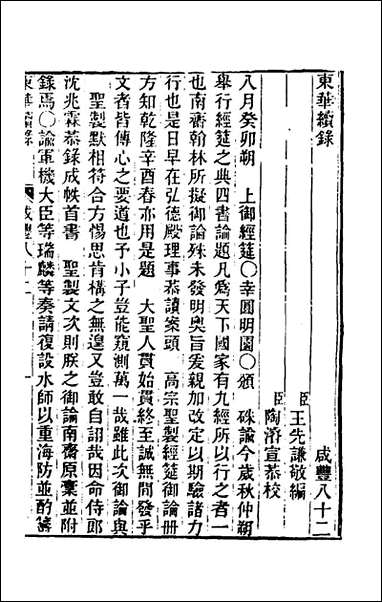 東華續錄 咸豐八十二
臣王先謙敬編
臣陶濬宣恭校
八月癸卯朔 上御經筵〇幸圓明園〇頒 硃諭今歲秋仲朔
舉行經筵之典四書論題凡爲天下國家有九經所以行之者一
也南齋翰林所擬御論殊未發明奧旨爰親加改定以期驗諸力
行也是日早在弘德殿理事恭讀案頭 高宗聖製經筵御論册
方知乾隆辛酉春亦用是題 大聖人貫始貫終至誠無間發乎
文者皆傳心之要道也予小子豈能窺測萬一哉雖此次御論與
聖製默相符合方惕思肯構之無遑又豈敢自詡哉因命侍郎
沈兆霖恭錄成帙首書 聖製文次則朕之御論南齋原稾並附
錄焉〇諭軍機大臣等瑞麟等奏請復設水師以重海防並酌籌
東華續錄 咸豐八十二 一